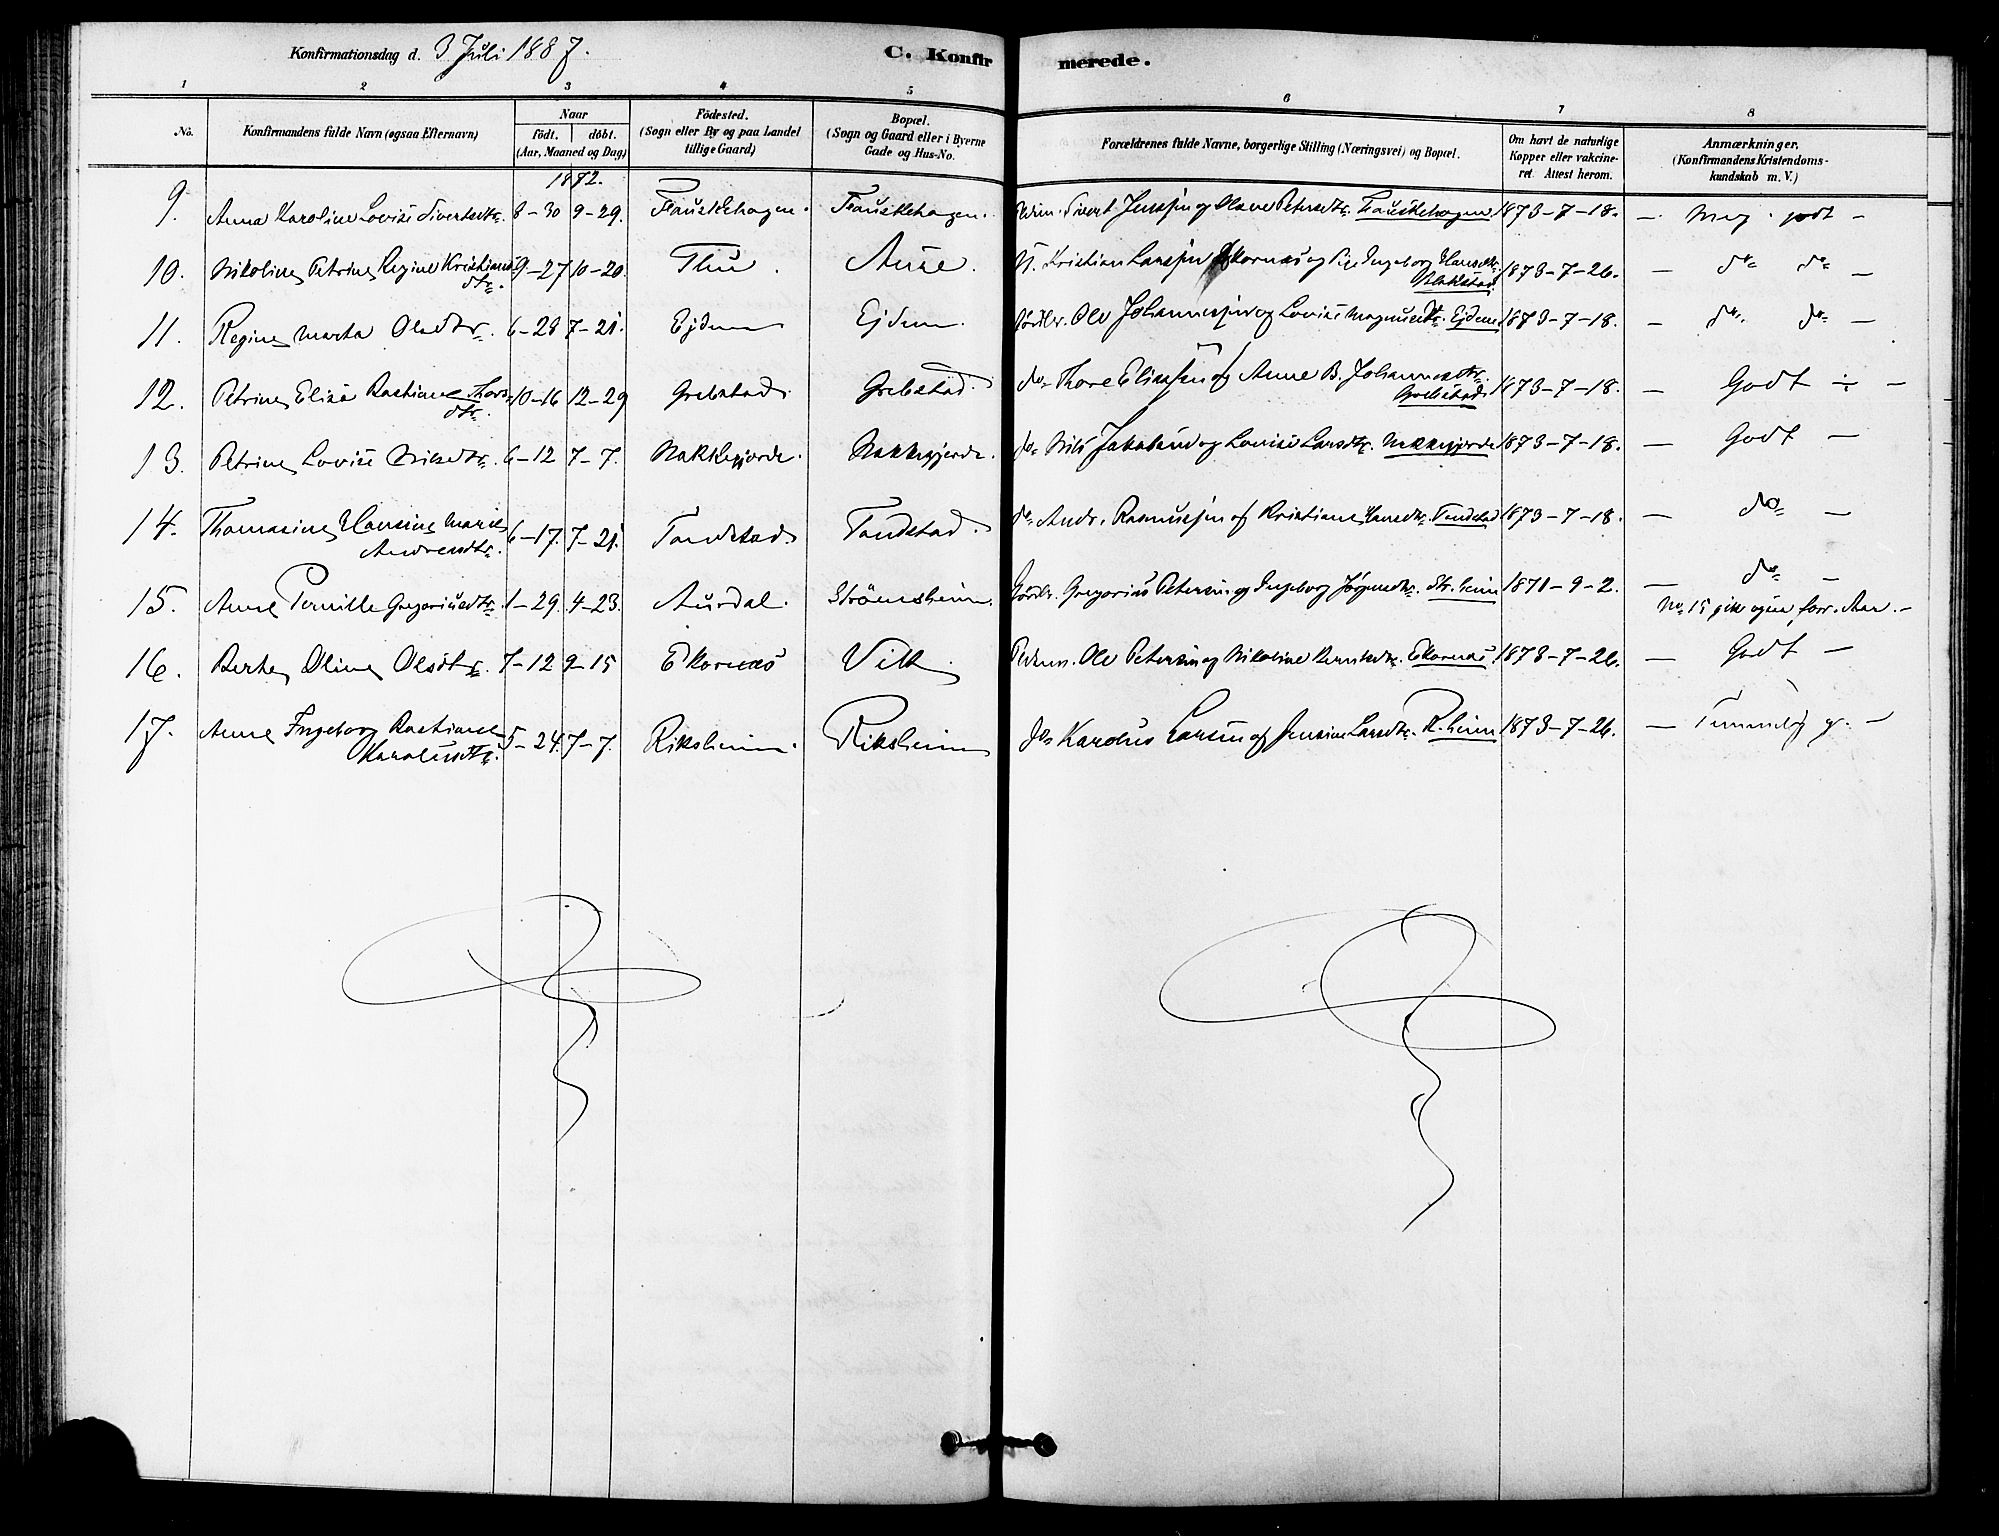 Konfirmationsdag d. 3 Juli 1887.
C. Konfirmerede.
1 2 3 4 5 6 7 8
No. Konfirmandens fulde Navn (ogsaa Efternavn) Naar födt. döbt. (Aar, Maaned og Dag) Födested. (Sogn eller By og paa Landet tillige Gaard) Bopæl. (Sogn og Gaard eller i Byerne Gade og Hus-No. Forældrenes fulde Navne, borgerlige Stilling (Næringsvei) og Bopæl. Om havt de naturlige Kopper eller vakcineret. Attest herom. Anmærkninger. (Konfirmandens Kristendomskundskab m. V.)
1872.
9. Anna Karoline Lovise Sivertsdtr. 8-30 9-29. Fauskehagen. Fauskehagen. Sivert Jenssen og Olave Petersdtr. Fauskehagen 1873-7-18. - Meg. godt -
10. Nikoline Petrine Regine Kristiansdtr. 9-27 10-20. Thu. Aure. Kristian Larssen Ekornæs og Ingeborg Hansdtr. Blakstad 1873-7-26. - do do -
11. Regine Marta Olsdtr. 6-28 7-21. Ejdem Ejdem. Ole Johannessen og Lovise Magnusdtr. Ejdem 1873-7-18. - do. do -
12. Petrine Elise Bastiane Thorsdtr. 10-16 12-29 Grebstad. Grebstad. do Thore Eliassen og Anne B. Johannesdtr. Grebstad 1873-7-18. - Godt ÷ -
13. Petrine Lovise Nilsdtr. 6-12 7-7. Nakkegjerde. Nakkegjerde. do Nils Jakobsen og Lovise Larsdtr. Nakkegjerde 1873-7-18. - Godt -
14. Thomasine Hansine Marie Andreasdtr. 6-17. 7-21. Tandstad. Tandstad. do Andr. Rasmussen og Kristiane Hansdtr. Tandstad 1873-7-18. - do -
15. Anne Pernille Gregoriusdtr. 1-29. 4-23. Aurdal. Strömsheim. Gregorius Petersen og Ingeborg Jörgensdtr. Str.heim 1871-9-2. - do -
No 15 gik ogsaa forr. Aar. -
16. Berte Oline Olsdtr. 7-12 9-15 Ekornæs Vik. Ole Petersen og Nikoline Berntsdtr. Ekornæs 1873-7-26. - Godt -
17. Anne Ingeborg Bastiane Karolusdtr. 5-24. 7-7. Riksheim. Riksheim do Karolus Larsen og Jensine Larsdtr. R.heim 1873-7-26. - Temmelig g. -